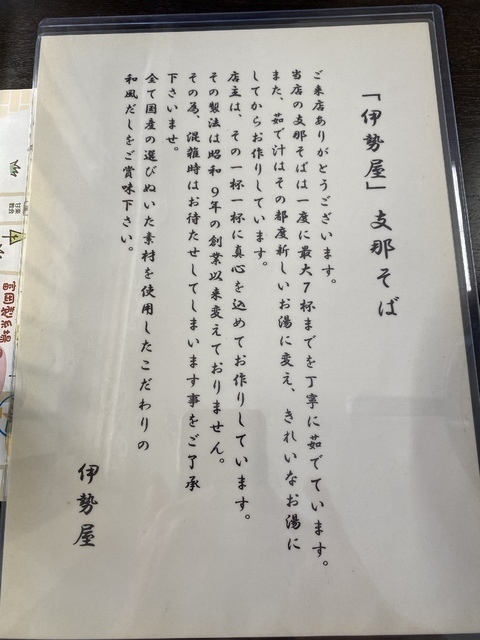 「伊勢屋」支那そば
ご来店ありがとうございます。
当店の支那そばは一度に最大7杯までを丁寧に茹でています。
また、茹で汁はその都度新しいお湯に変え、きれいなお湯に
してからお作りしています。
店主は、その一杯一杯に真心を込めてお作りしています。
その製法は昭和9年の創業以来変えておりません。
その為、混雑時はお待たせしてしまいます事をご了承
下さいませ。
全て国産の選びぬいた素材を使用したこだわりの
和風だしをご賞味下さい。
伊勢屋
富岡製糸場